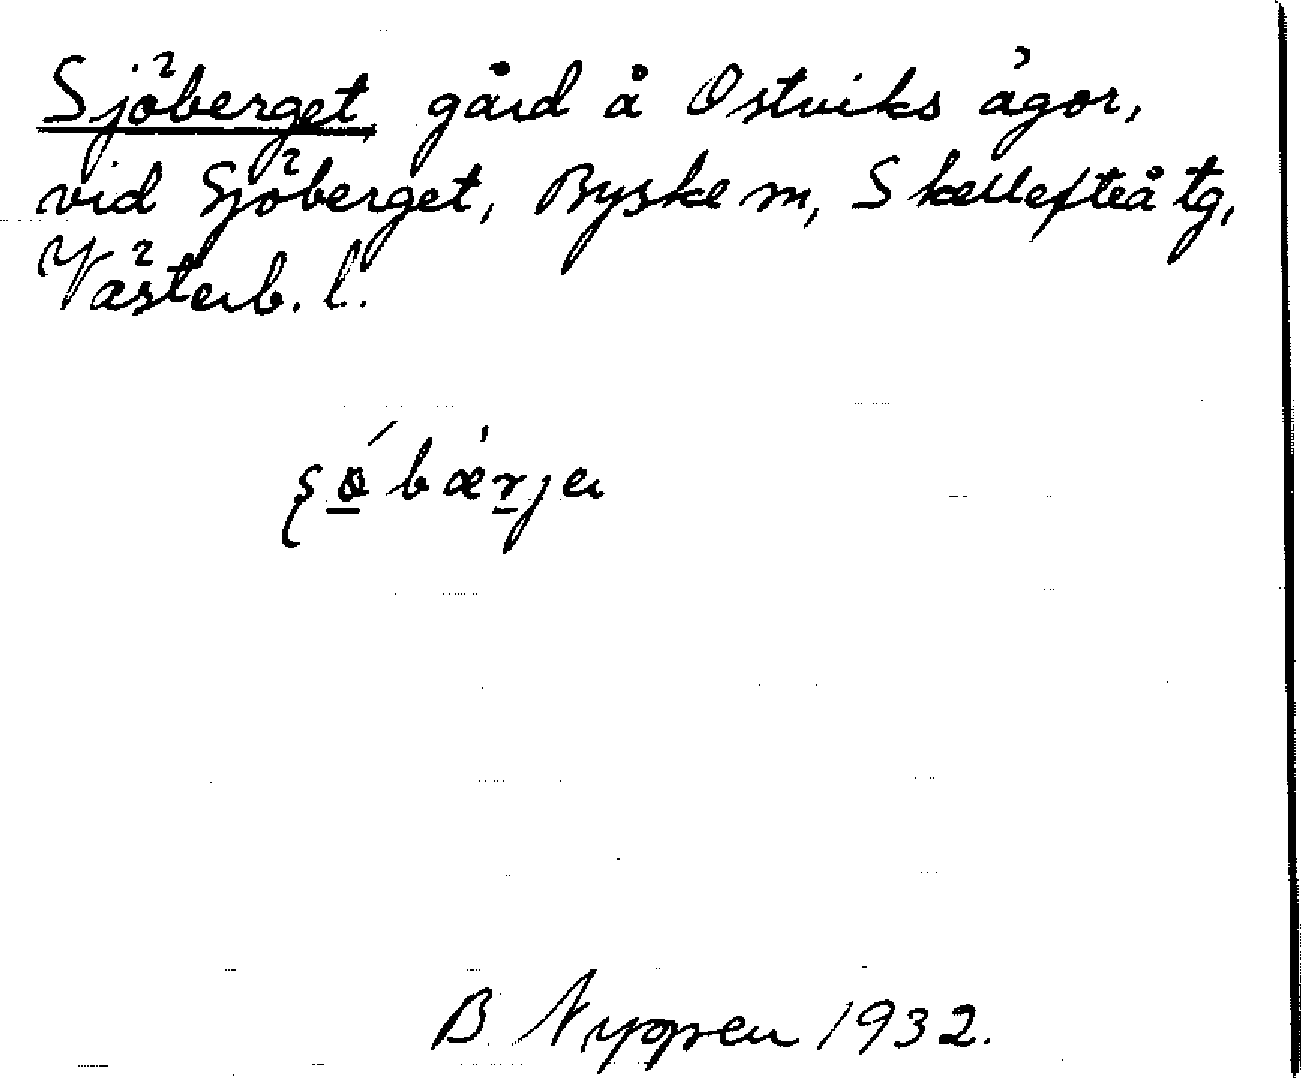 Sjöberget gård å Ostviks ägor,
vid Sjöberget, Byske m, Skellefteå tg,
Västerb. l.
B. Nygren 1932.